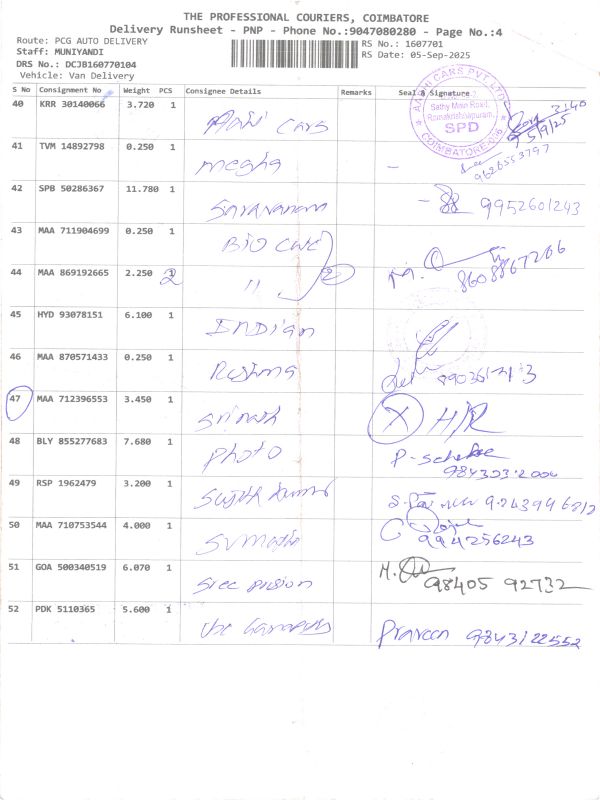 THE PROFESSIONAL COURIERS, COIMBATORE
Delivery Runsheet - PNP - Phone No.:9047080280 - Page No.:4
Route: PCG AUTO DELIVERY
Staff: MUNIYANDI
DRS No.: DCJB160770104
Vehicle: Van Delivery
RS No.: 1607701
RS Date: 05-Sep-2025
S No Consignment No Weight PCS Consignee Details Remarks Seal & Signature
40 KRR 30140066 3.720 1 Cars
CARS PVT LTD
Sathy Main Road,
Ramakrishnapuram,
SPD
COIMBATORE
5/9/25
41 TVM 14892798 0.250 1 Megha - 9626553797
42 SPB 50286367 11.780 1 Saravanam - 9952601243
43 MAA 711904699 0.250 1 Bio
44 MAA 869192665 2.250 2 " 2 8608867206
45 HYD 93078151 6.100 1 Indian
46 MAA 870571433 0.250 1
47 MAA 712396553 3.450 1 Srinath X H/R
48 BLY 855277683 7.680 1 Photo
49 RSP 1962479 3.200 1 Sujith Kumar
50 MAA 710753544 4.000 1 9944256243
51 GOA 500340519 6.070 1 Sree M. 98405 92732
52 PDK 5110365 5.600 1 The Praveen 9843122552